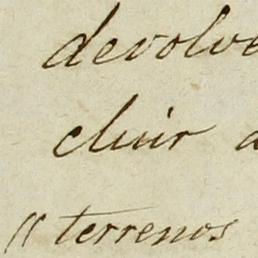 devolve
cluir a
" terrenos